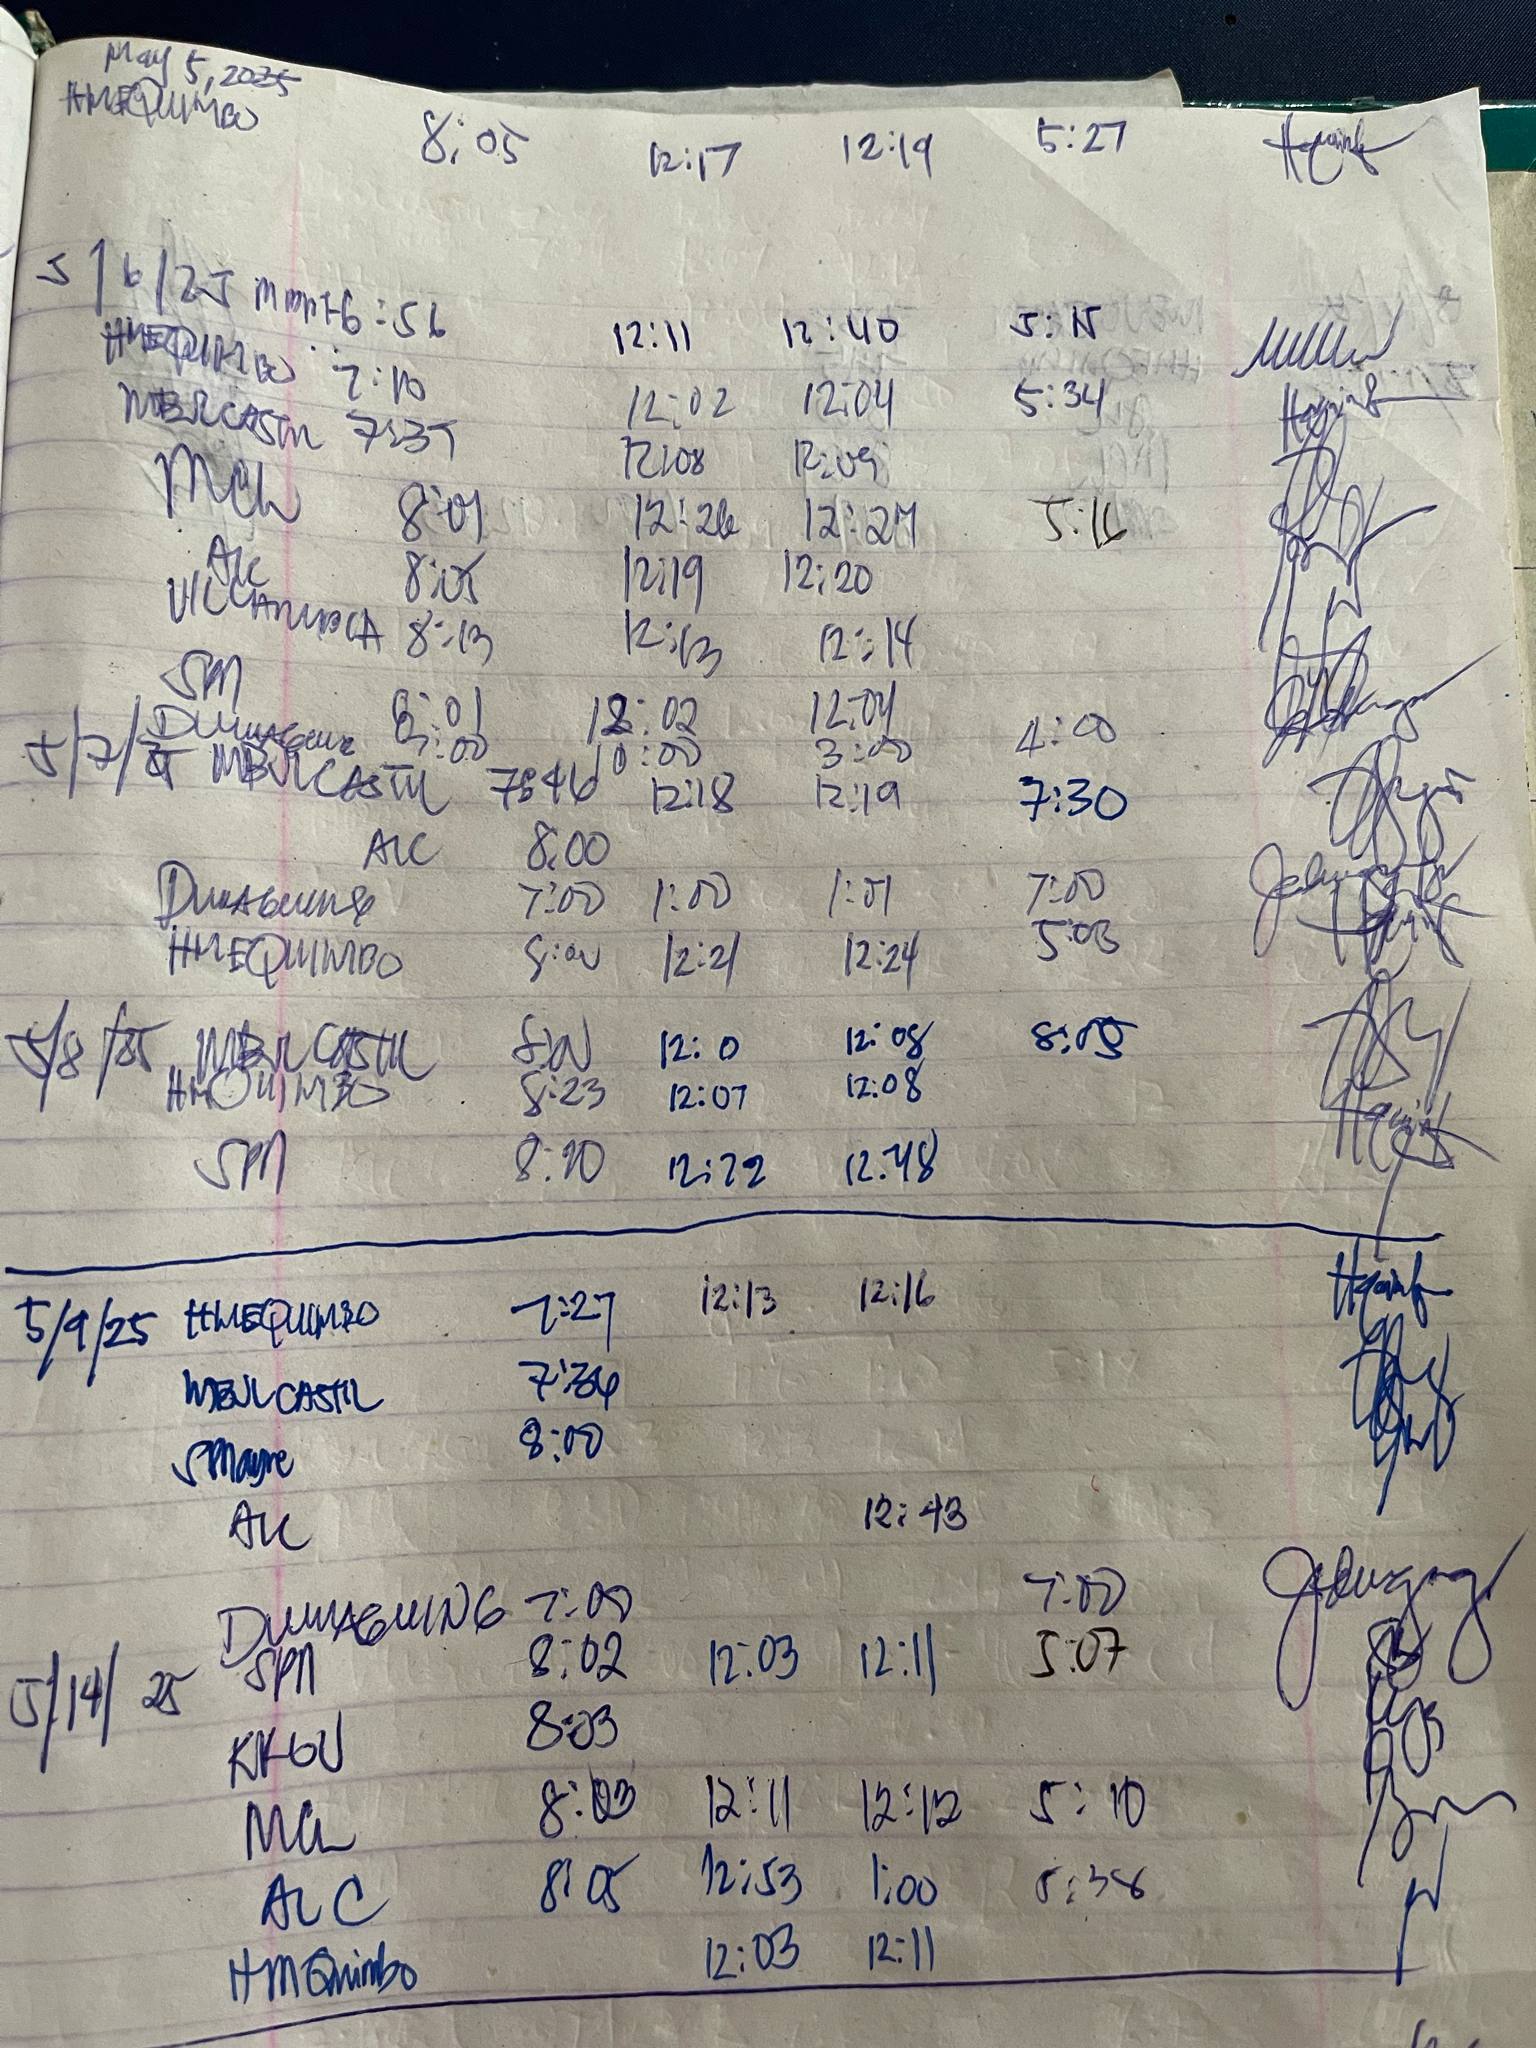 May 5, 2025
HMEQUIMBO 8:05 12:17 12:19 5:27
5/6/25 6:56 12:11 12:40 5:15
HMEQUIMBO 7:10 12:02 12:04 5:34
MBVRCASTIL 7:35 12:08 12:09
MCL 8:01 12:26 12:27 5:16
ALC 8:05 12:19 12:20
VILLANUEVA 8:13 12:13 12:14
SPM 8:01 12:02 12:04
DUMAGUING 7:00 10:00 3:00 4:00
5/7/25 MBVRCASTIL 7:46 12:18 12:19 7:30
ALC 8:00
DUMAGUING 7:00 1:00 1:01 7:00
HMEQUIMBO 8:00 12:21 12:24 5:03
5/8/25 MBVRCASTIL 8:00 12:0 12:08 8:05
HMQUIMBO 8:23 12:07 12:08
SPM 8:10 12:22 12:48
5/9/25 HMEQUIMBO 7:27 12:13 12:16
MBVRCASTIL 7:36
SMayre 8:00
ALC 12:43
DUMAGUING 7:00 7:00
5/14/25 SPM 8:02 12:03 12:11 5:07
8:03
MCL 8:03 12:11 12:12 5:10
ALC 8:05 12:53 1:00 5:38
HMQuimbo 12:03 12:11